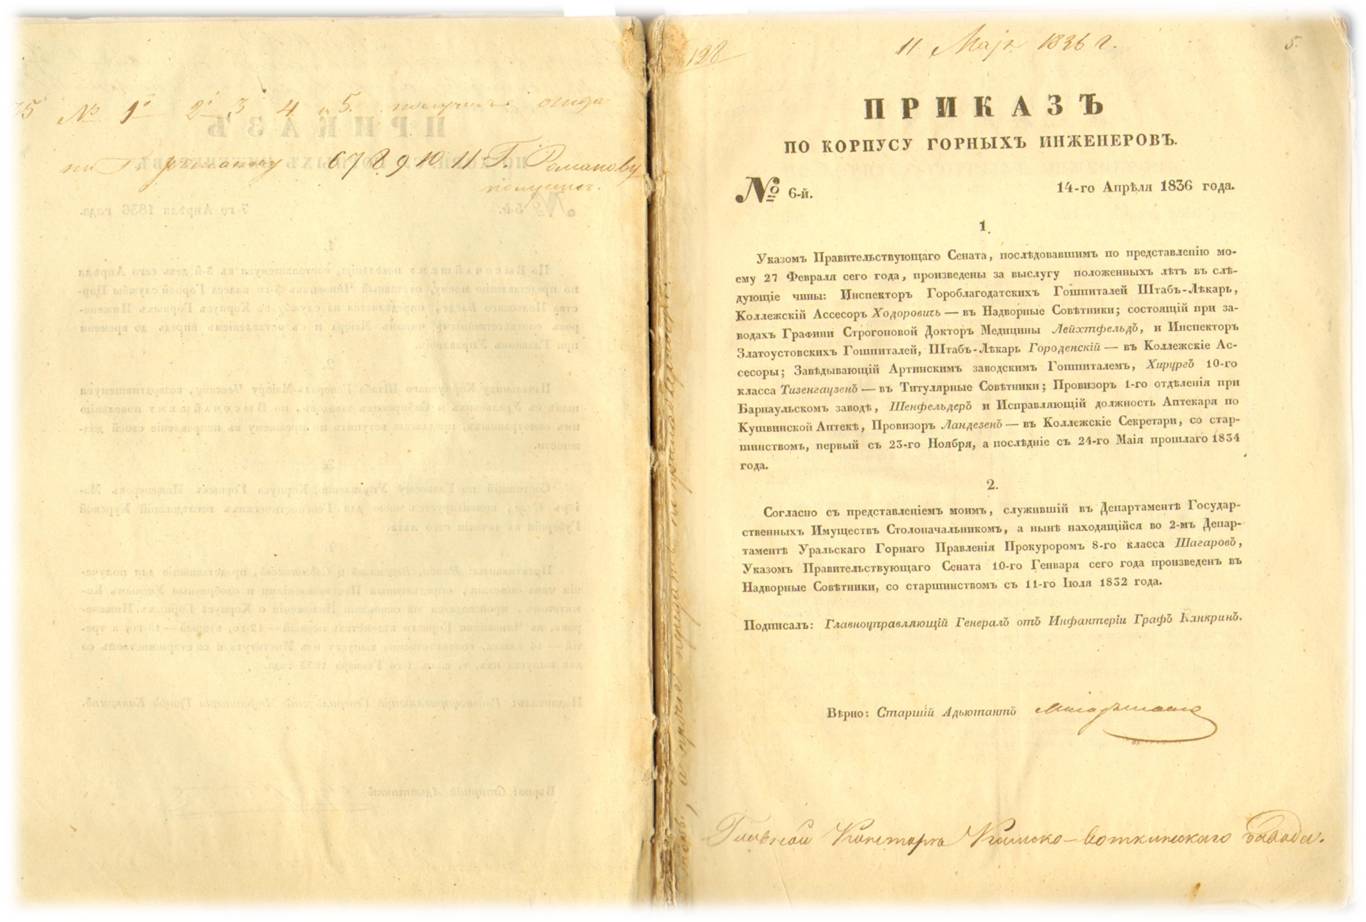 № 1й 2й 3 4 и 5. получилъ
6 7 8 9 10 11 Г. Романову
получилъ.
128
11 Маія 1836 г.
5.
ПРИКАЗЪ
ПО КОРПУСУ ГОРНЫХЪ ИНЖЕНЕРОВЪ.
№ 6-й. 14-го Апрѣля 1836 года.
1.
Указомъ Правительствующаго Сената, послѣдовавшимъ по представленію мо-
ему 27 Февраля сего года, произведены за выслугу положенныхъ лѣтъ въ слѣ-
дующіе чины: Инспекторъ Гороблагодатскихъ Гошпиталей Штабъ-Лѣкарь,
Коллежскій Ассесоръ Ходоровичъ — въ Надворные Совѣтники; состоящій при за-
водахъ Графини Строгоновой Докторъ Медицины Лейхтфельдъ, и Инспекторъ
Златоустовскихъ Гошпиталей, Штабъ-Лѣкарь Городенскій — въ Коллежскіе Ас-
сесоры; Завѣдывающій Артинскимъ заводскимъ Гошпиталемъ, Хирургъ 10-го
класса Тизенгаузенъ — въ Титулярные Совѣтники; Провизоръ 1-го отдѣленія при
Барнаульскомъ заводѣ, Шенфельдеръ и Исправляющій должность Аптекаря по
Кушвинской Аптекѣ, Провизоръ Ландезенъ — въ Коллежскіе Секретари, со стар-
шинствомъ, первый съ 23-го Ноября, а послѣдніе съ 24-го Маія прошлаго 1834
года.
2.
Согласно съ представленіемъ моимъ, служившій въ Департаментѣ Государ-
ственныхъ Имуществъ Столоначальникомъ, а нынѣ находящійся во 2-мъ Депар-
таментѣ Уральскаго Горнаго Правленія Прокуроромъ 8-го класса Шагаровъ,
Указомъ Правительствующаго Сената 10-го Генваря сего года произведенъ въ
Надворные Совѣтники, со старшинствомъ съ 11-го Іюля 1832 года.
Подписалъ: Главноуправляющій Генералъ отъ Инфантеріи Графъ Канкринъ.
Вѣрно: Старшій Адъютантъ
Главной Конторѣ Камско-Воткинскаго завода.